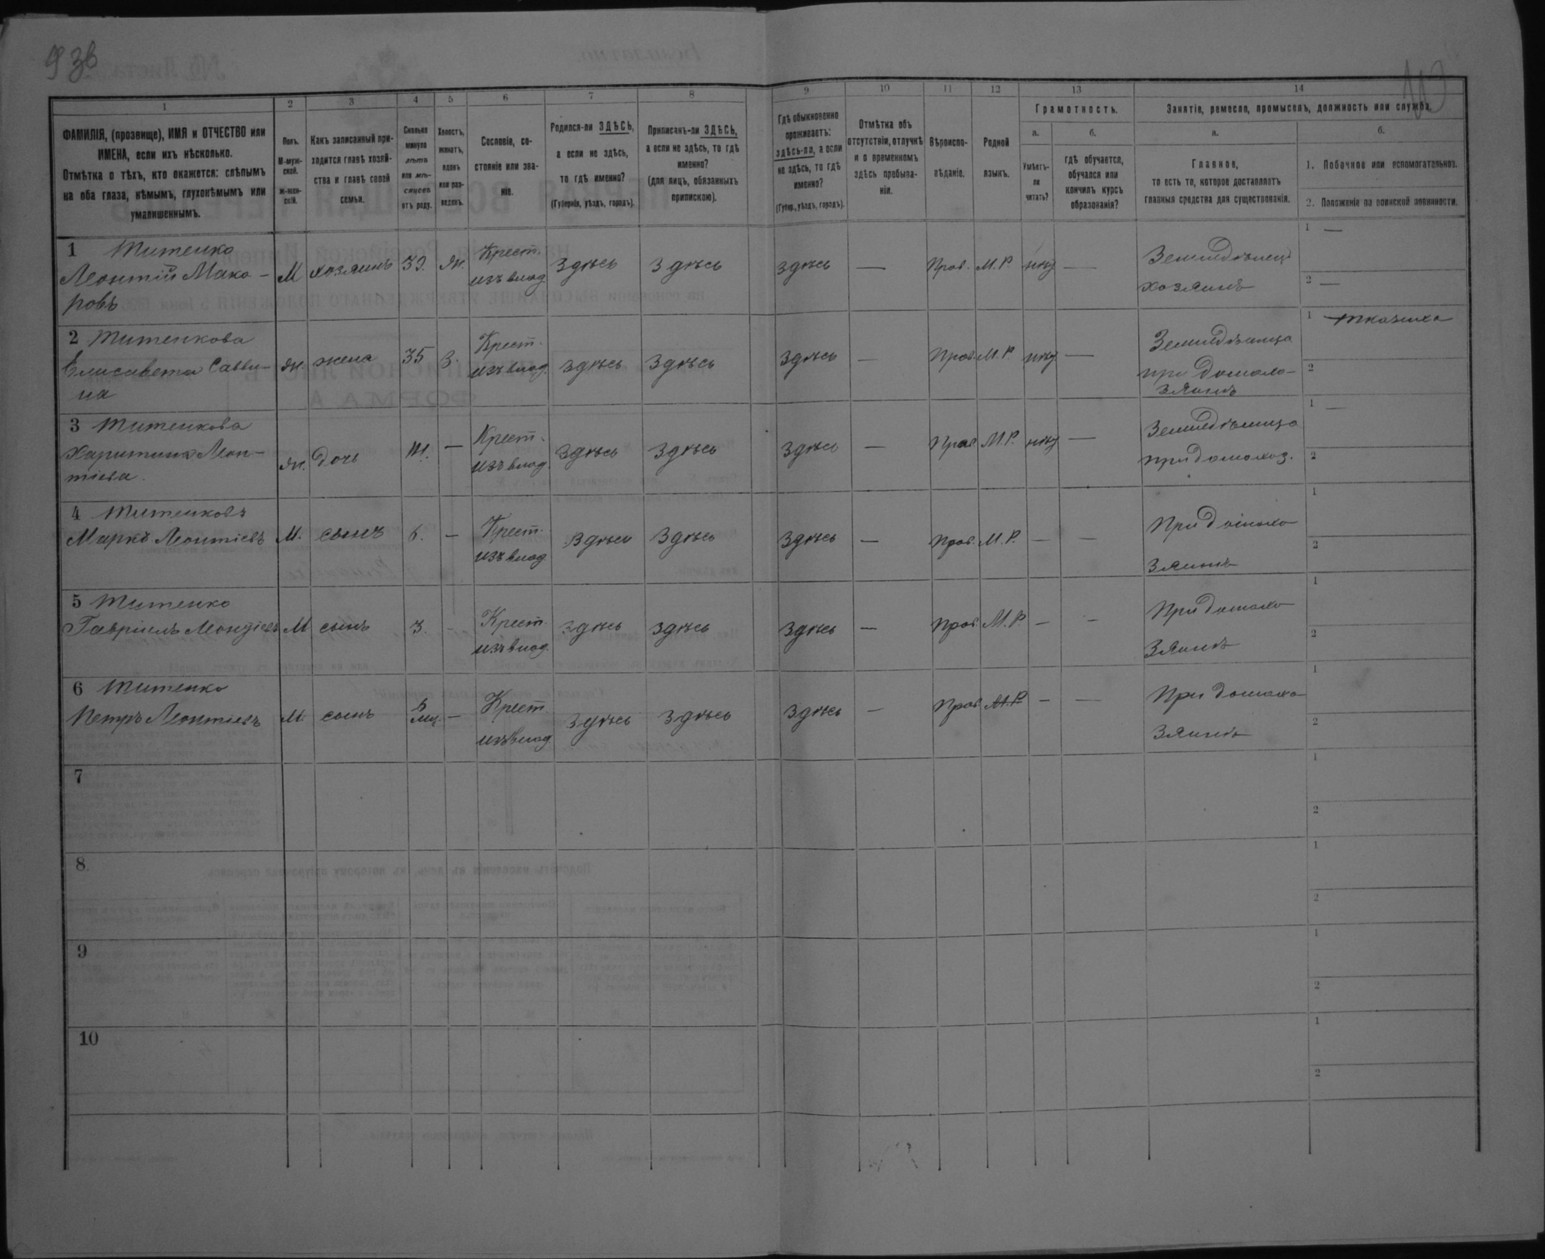 93в
1 2 3 4 5 6 7 8 9 10 11 12 13 14
ФАМИЛІЯ, (прозвище), ИМЯ и ОТЧЕСТВО или
ИМЕНА, если ихъ нѣсколько.
Отмѣтка о тѣхъ, кто окажется: слѣпымъ
на оба глаза, нѣмымъ, глухонѣмымъ или
умалишеннымъ.
Полъ.
М-муж-
ской.
Ж-жен-
скій.
Какъ записанный при-
ходится главѣ хозяй-
ства и главѣ своей
семьи.
Сколько
минуло
лѣтъ
или мѣ-
сяцевъ
отъ роду.
Холостъ,
женатъ,
вдовъ
или раз-
веденъ.
Сословіе, со-
стояніе или зва-
ніе.
Родился-ли ЗДѢСЬ,
а если не здѣсь,
то гдѣ именно?
(Губернія, уѣздъ, городъ).
Приписанъ-ли ЗДѢСЬ,
а если не здѣсь, то гдѣ
именно?
(для лицъ, обязанныхъ
припискою).
Гдѣ обыкновенно
проживаетъ:
здѣсь-ли, а если
не здѣсь, то гдѣ
именно?
(Губер., уѣздъ, городъ).
Отмѣтка объ
отсутствіи, отлучкѣ
и о временномъ
здѣсь пребыва-
ніи.
Вѣроиспо-
вѣданіе.
Родной
языкъ.
Грамотность.
а.
Умѣетъ-
ли
читать?
б.
гдѣ обучается,
обучался или
кончилъ курсъ
образованія?
Занятіе, ремесло, промыселъ, должность или служба.
а.
Главное,
то есть то, которое доставляетъ
главныя средства для существованія.
б.
1. Побочное или вспомогательное.
2. Положеніе по воинской повинности.
1 Титенко
Леонтій Мака-
ровъ
М хозяинъ 39. Ж. Крест.
изъ влад
Здѣсь Здѣсь Здѣсь — Прав. М.Р. нѣт —
Земледѣлецъ
хозяинъ
1 —
2 —
2 Титенкова
Елисавета Савви-
на
Ж. жена 35 З. Крест.
изъ влад
Здѣсь Здѣсь Здѣсь — Прав М.Р нѣт —
Земледѣлица
при домохо-
зяинѣ
1 ткачиха
2
3 Титенкова
Харитина Леон-
тіева
Ж. дочь 14. — Крест.
изъ влад
Здѣсь Здѣсь Здѣсь — Прав М.Р. нѣт —
Земледѣлица
при домохоз.
1 —
2
4 Титенковъ
Маркъ Леонтіевъ
М. сынъ 6. — Крест.
изъ влад
Здѣсь Здѣсь Здѣсь — Прав М.Р. — —
При домохо
зяинѣ
1
2
5 Титенко
Гавріилъ Леонтіевъ
М сынъ 3. Крест.
изъ влад
Здѣсь Здѣсь Здѣсь — Прав М.Р — —
При домохо
зяинѣ
1
2
6 Титенко
Петръ Леонтіевъ
М. сынъ 5
мц. — Крест.
изъ влад
Здѣсь Здѣсь Здѣсь — Прав М.Р — —
При домохо
зяинѣ
1
2
7
1
2
8
1
2
9
1
2
10
1
2